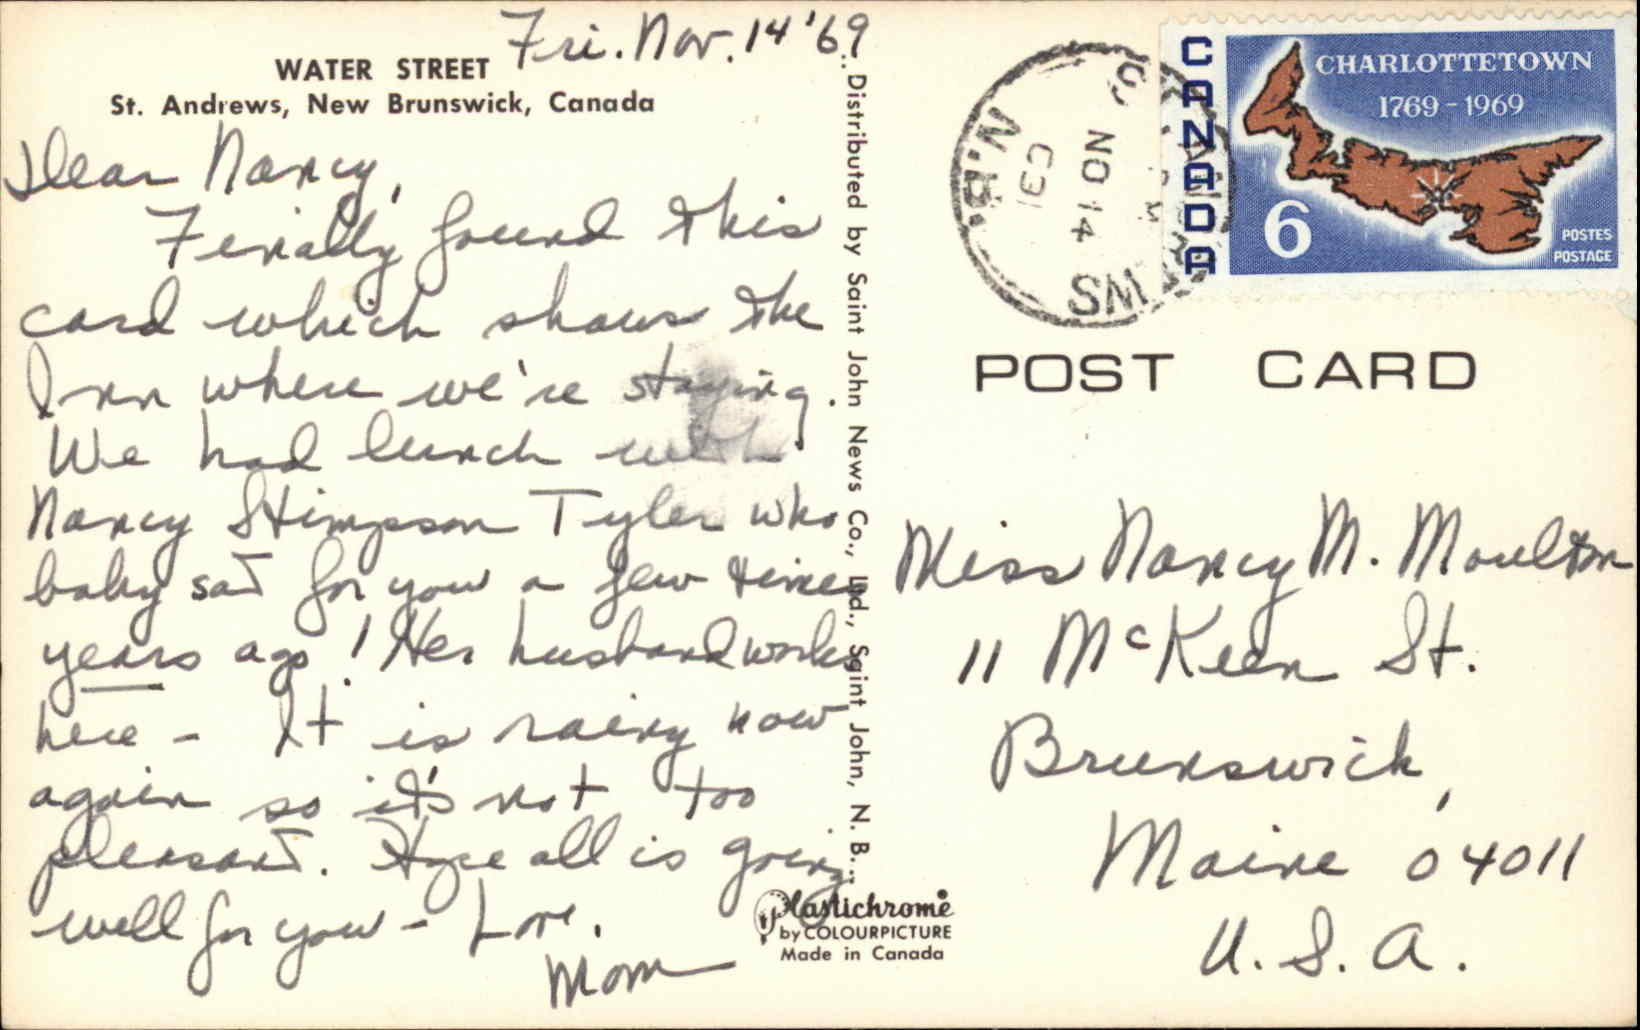 Fri. Nov. 14 '69
WATER STREET
St. Andrews, New Brunswick, Canada
Dear Nancy,
Finally found this
card which shows the
Inn where we're staying.
We had lunch with
Nancy Stimpson Tyler who
baby sat for you a few times
years ago! Her husband works
here - It is rainy now
again so it's not too
pleasant. Hope all is going
well for you - Love,
Mom
Distributed by Saint John News Co., Ltd., Saint John, N. B.
Plastichrome
by COLOURPICTURE
Made in Canada
ST. ANDREWS
NO 14
N.B.
CANADA
CHARLOTTETOWN
1769-1969
6
POSTES
POSTAGE
POST CARD
Miss Nancy M. Moulton
11 McKeen St.
Brunswick,
Maine 04011
U.S.A.